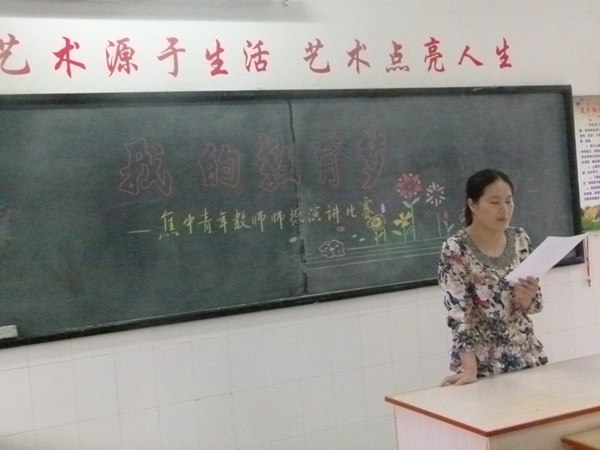 艺术源于生活 艺术点亮人生
我的教师梦
—焦中青年教师师德演讲比赛